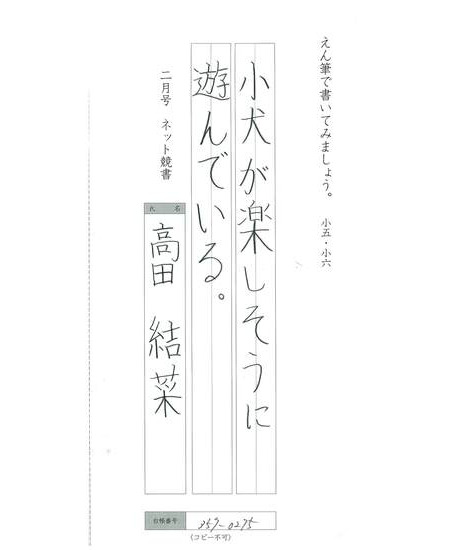 えん筆で書いてみましょう。 小五・小六
小犬が楽しそうに
遊んでいる。
二月号 ネット競書
氏名
高田 結菜
台帳番号
259-0275
(コピー不可)